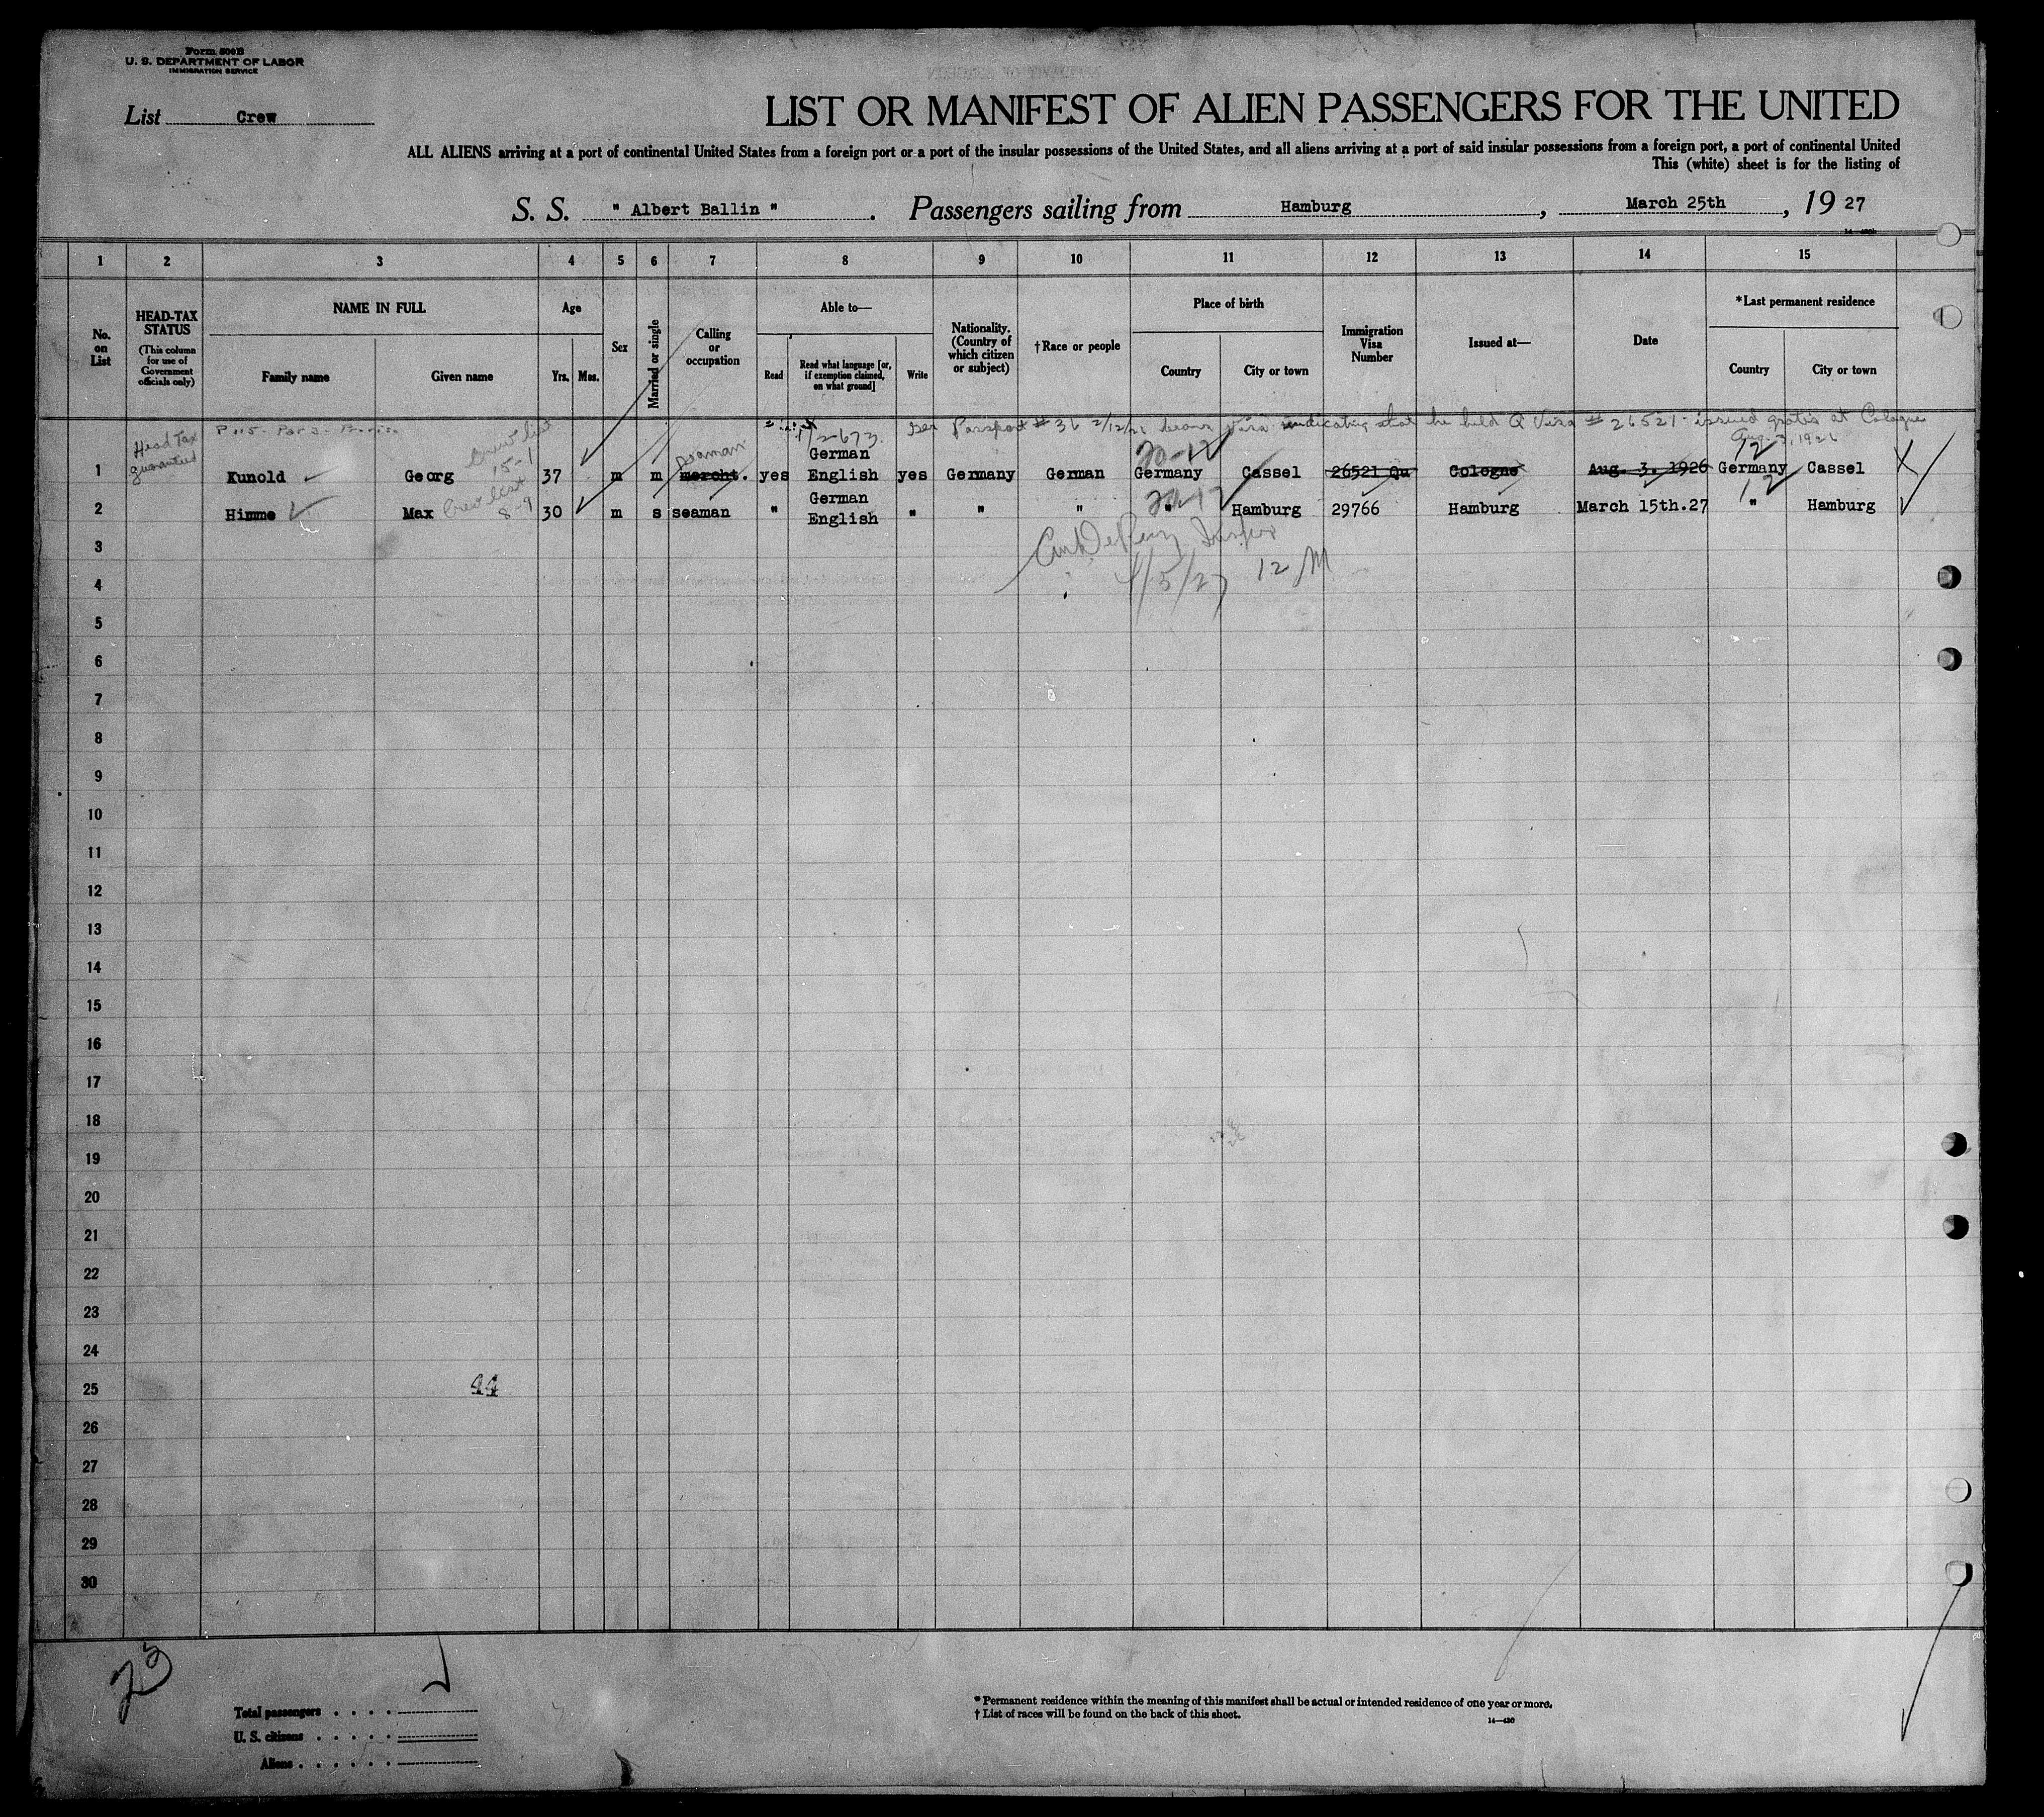 Form 500B
U. S. DEPARTMENT OF LABOR
IMMIGRATION SERVICE
List Crew
LIST OR MANIFEST OF ALIEN PASSENGERS FOR THE UNITED
ALL ALIENS arriving at a port of continental United States from a foreign port or a port of the insular possessions of the United States, and all aliens arriving at a port of said insular possessions from a foreign port, a port of continental United
This (white) sheet is for the listing of
S. S. " Albert Ballin " . Passengers sailing from Hamburg , March 25th , 19 27
1 2 3 4 5 6 7 8 9 10 11 12 13 14 15
No. on List
HEAD-TAX STATUS
(This column for use of Government officials only)
NAME IN FULL
Family name Given name
Age
Yrs. Mos.
Sex
Married or single
Calling or occupation
Able to—
Read
Read what language [or, if exemption claimed, on what ground]
Write
Nationality. (Country of which citizen or subject)
†Race or people
Place of birth
Country City or town
Immigration Visa Number
Issued at—
Date
*Last permanent residence
Country City or town
Ger Passport # 36 2/12/21 bears visa indicating that he held Q Visa # 26521 - issued gratis at Cologne
Aug. 3, 1926
Head Tax guaranteed
Crew list 15-1
seaman
20-12
12
1 Kunold Georg 37 m m mercht. yes German English yes Germany German Germany Cassel 26521 Qu Cologne Aug. 3. 1926 Germany Cassel
Crew list 8-9
2 Himme Max 30 m s seaman " German English " " " " Hamburg 29766 Hamburg March 15th.27 " Hamburg
3
4/5/27 12 M
4
5
6
7
8
9
10
11
12
13
14
15
16
17
18
19
20
21
22
23
24
25
44
26
27
28
29
30
23
Total passengers
U. S. citizens
Aliens
* Permanent residence within the meaning of this manifest shall be actual or intended residence of one year or more.
† List of races will be found on the back of this sheet.
14—430